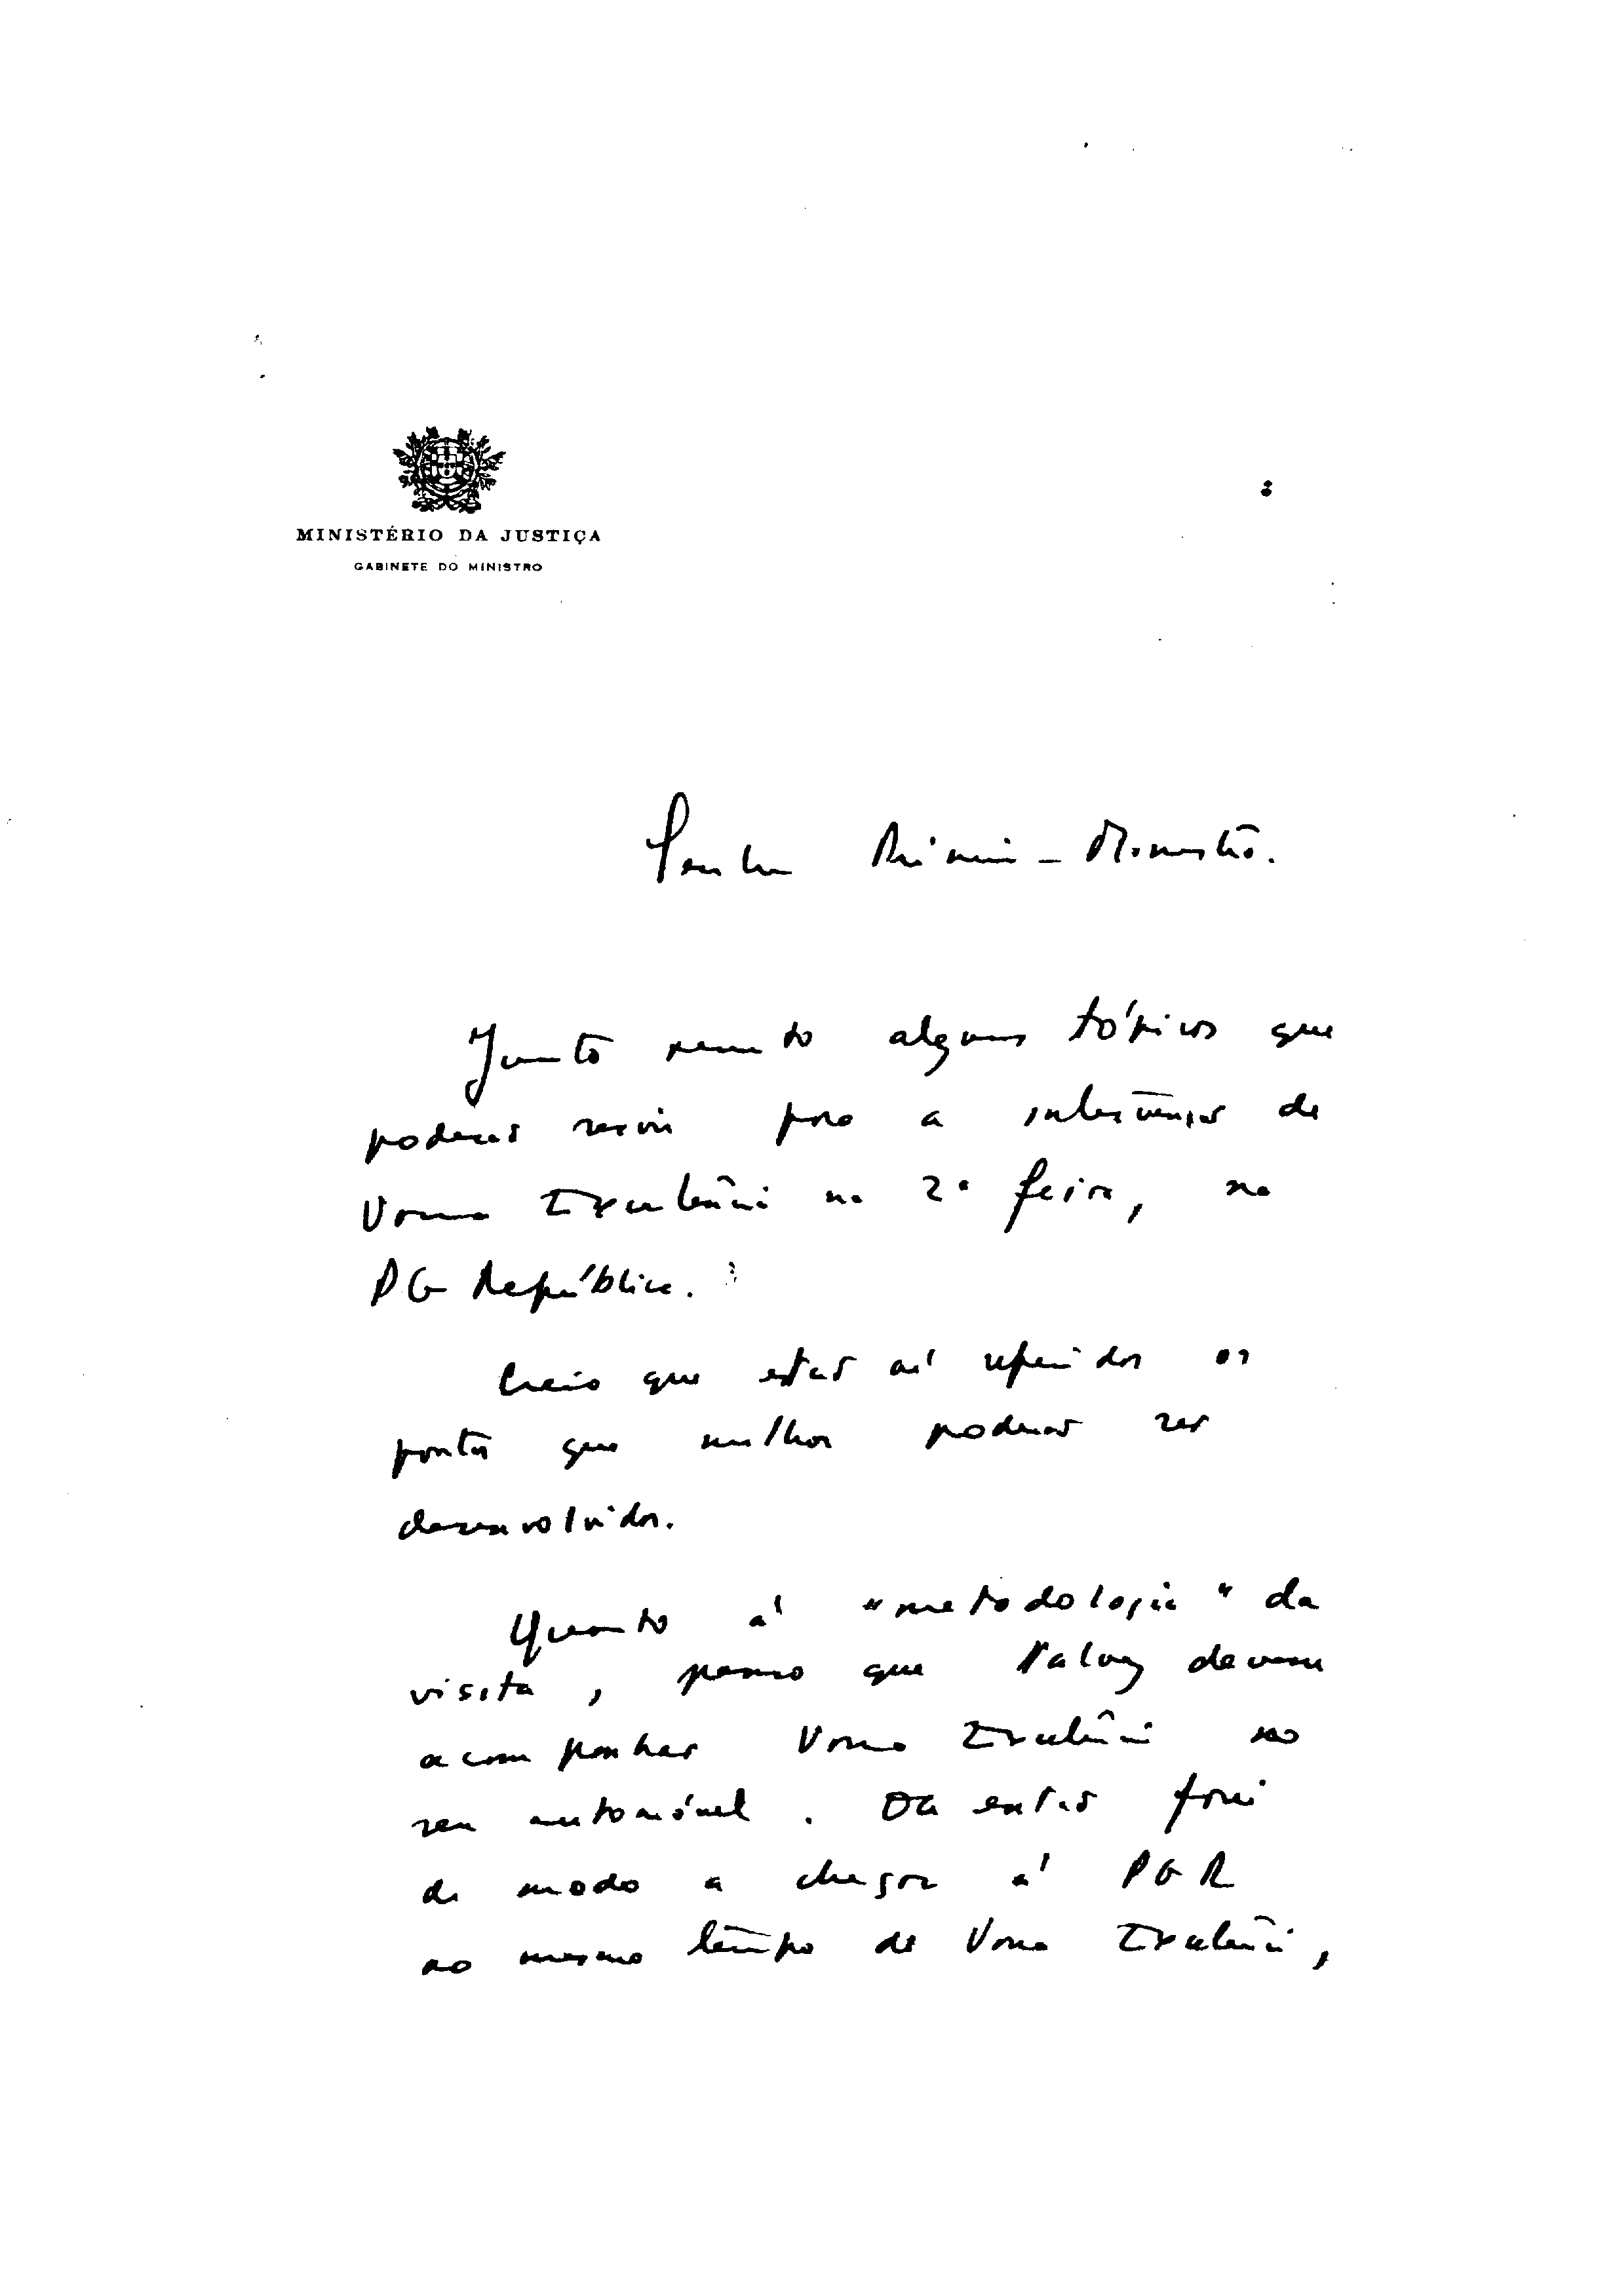 MINISTÉRIO DA JUSTIÇA
GABINETE DO MINISTRO
Senhor Primeiro-Ministro.
Junto remeto alguns tópicos que
poderão servir para a intervenção de
Vossa Excelência na 2ª feira, na
PG República.
Creio que estão aí referidos os
pontos que melhor poderão ser
desenvolvidos.
Quanto à "metodologia" da
visita, penso que talvez devesse
acompanhar Vossa Excelência no
seu automóvel. Ou então faria
de modo a chegar à PGR
ao mesmo tempo de Vossa Excelência,